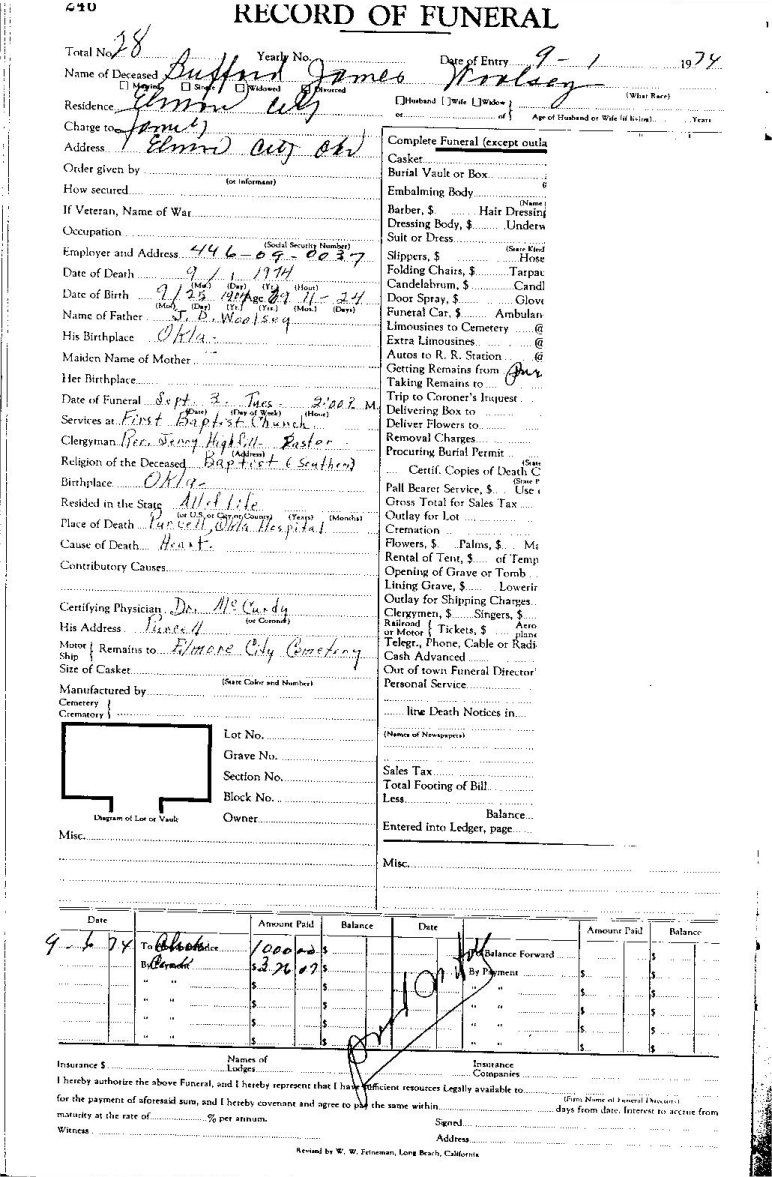 240
RECORD OF FUNERAL
Total No. 28 Yearly No. Date of Entry 9 - 1 1974
Name of Deceased Bufford James Woolsey
Married Single Widowed Divorced (What Race)
Residence Elmore City Husband Wife Widow
or of Age of Husband or Wife (if living) Years
Charge to
Address Elmore City Okla
Order given by
(or Informant)
How secured
If Veteran, Name of War
Occupation
(Social Security Number)
Employer and Address 446-09-0037
Date of Death 9 / 1 / 1974
(Mo.) (Day) (Yr.) (Hour)
Date of Birth 9/25 1904 Age 69 11 - 24
(Mo.) (Day) (Yr.) (Yrs.) (Mos.) (Days)
Name of Father J. D. Woolsey
His Birthplace Okla.
Maiden Name of Mother
Her Birthplace
Date of Funeral Sept. 3. Tues - 2:00 P. M.
(Date) (Day of Week) (Hour)
Services at First Baptist Church
Clergyman Rev. Jerry Highfill Pastor
(Address)
Religion of the Deceased Baptist (Southern)
Birthplace Okla-
Resided in the State All of life
(or U.S. or City or County) (Years) (Months)
Place of Death Purcell, Okla Hospital
Cause of Death Heart.
Contributory Causes
Certifying Physician Dr. McCurdy
(or Coroner)
His Address Purcell
Motor Ship Remains to Elmore City Cemetery
Size of Casket
(State Color and Number)
Manufactured by
Cemetery
Crematory
Lot No.
Grave No.
Section No.
Block No.
Diagram of Lot or Vault Owner
Misc.
Complete Funeral (except outla
Casket
Burial Vault or Box
Embalming Body
(Name
Barber, $ Hair Dressing
Dressing Body, $ Underw
Suit or Dress
(State Kind
Slippers, $ Hose
Folding Chairs, $ Tarpau
Candelabrum, $ Candl
Door Spray, $ Glove
Funeral Car, $ Ambulan
Limousines to Cemetery @
Extra Limousines @
Autos to R. R. Station @
Getting Remains from Pur
Taking Remains to
Trip to Coroner's Inquest
Delivering Box to
Deliver Flowers to
Removal Charges
Procuring Burial Permit
(State
Certif. Copies of Death C
(State P
Pall Bearer Service, $ Use
Gross Total for Sales Tax
Outlay for Lot
Cremation
Flowers, $ Palms, $ Ma
Rental of Tent, $ of Temp
Opening of Grave or Tomb
Lining Grave, $ Lowerin
Outlay for Shipping Charges
Clergymen, $ Singers, $
Railroad or Motor Tickets, $ Aero plane
Telegr., Phone, Cable or Radi
Cash Advanced
Out of town Funeral Director'
Personal Service
line Death Notices in
(Names of Newspapers)
Sales Tax
Total Footing of Bill
Less
Balance
Entered into Ledger, page
Misc.
Date Amount Paid Balance Date Amount Paid Balance
9 - 6 74 To 1000 00 $ Balance Forward $
By Payment $326 07 $ By Payment $ $
" " $ $ " " $ $
" " $ $ " " $ $
" " $ $ " " $ $
" " $ $ " " $ $
Paid in full
Insurance $ Names of Lodges Insurance Companies
I hereby authorize the above Funeral, and I hereby represent that I have sufficient resources Legally available to
(Firm Name of Funeral Director)
for the payment of aforesaid sum, and I hereby covenant and agree to pay the same within days from date. Interest to accrue from
maturity at the rate of % per annum. Signed
Witness Address
Revised by W. W. Feineman, Long Beach, California